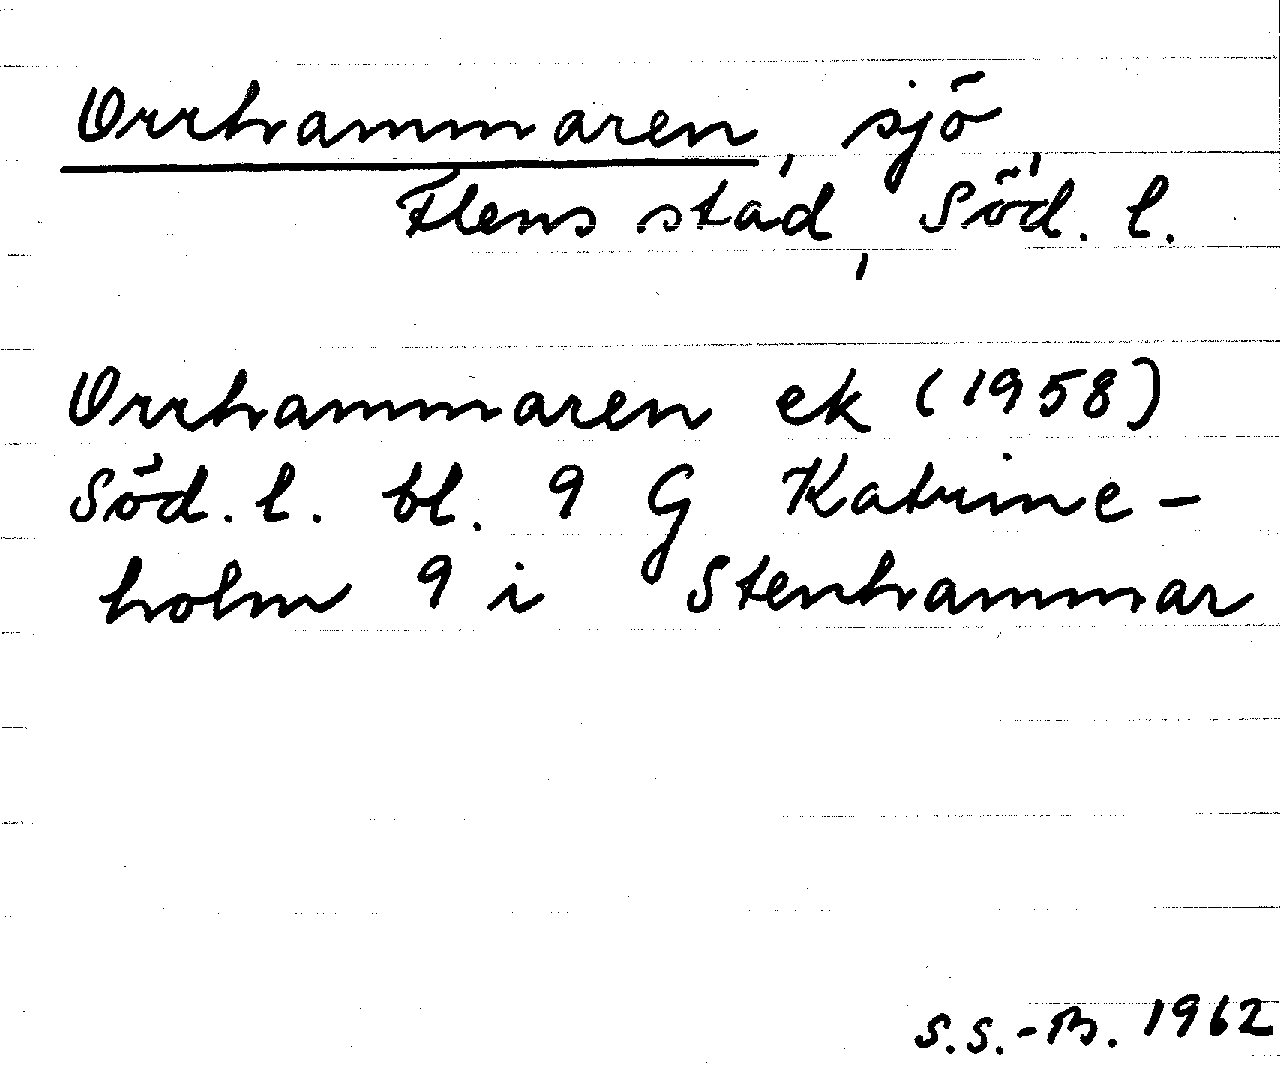 Orrhammaren, sjö,
Flens stad, Söd. l.
Orrhammaren ek (1958)
Söd. l. bl. 9 G Katrine-
holm 9 i Stenhammar
S.S.-B. 1962